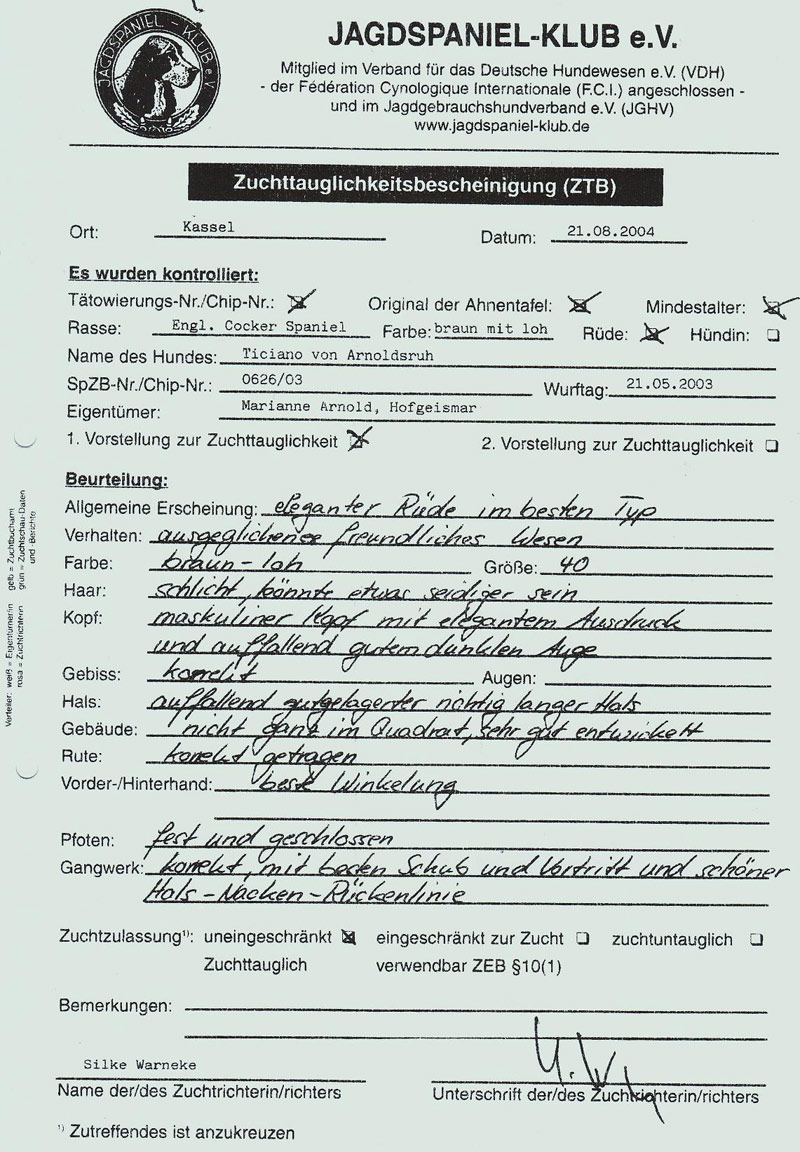 JAGDSPANIEL - KLUB e.V.
JAGDSPANIEL-KLUB e.V.
Mitglied im Verband für das Deutsche Hundewesen e.V. (VDH)
- der Fédération Cynologique Internationale (F.C.I.) angeschlossen -
und im Jagdgebrauchshundverband e.V. (JGHV)
www.jagdspaniel-klub.de
Zuchttauglichkeitsbescheinigung (ZTB)
Ort: Kassel Datum: 21.08.2004
Es wurden kontrolliert:
Tätowierungs-Nr./Chip-Nr.: ☒ Original der Ahnentafel: ☒ Mindestalter: ☒
Rasse: Engl. Cocker Spaniel Farbe: braun mit loh Rüde: ☒ Hündin: ☐
Name des Hundes: Ticiano von Arnoldsruh
SpZB-Nr./Chip-Nr.: 0626/03 Wurftag: 21.05.2003
Eigentümer: Marianne Arnold, Hofgeismar
1. Vorstellung zur Zuchttauglichkeit ☒ 2. Vorstellung zur Zuchttauglichkeit ☐
Beurteilung:
Allgemeine Erscheinung: eleganter Rüde im besten Typ
Verhalten: ausgeglichenes freundliches Wesen
Farbe: braun-loh Größe: 40
Haar: schlicht, könnte etwas seidiger sein
Kopf: maskuliner Kopf mit elegantem Ausdruck
und auffallend gutem dunklen Auge
Gebiss: korrekt Augen:
Hals: auffallend gutgelagerter richtig langer Hals
Gebäude: nicht ganz im Quadrat, sehr gut entwickelt
Rute: korrekt getragen
Vorder-/Hinterhand: beste Winkelung
Pfoten: fest und geschlossen
Gangwerk: korrekt, mit besten Schub und Vortritt und schöner
Hals-Nacken-Rückenlinie
Zuchtzulassung¹⁾: uneingeschränkt ☒ eingeschränkt zur Zucht ☐ zuchtuntauglich ☐
Zuchttauglich verwendbar ZEB §10(1)
Bemerkungen:
Silke Warneke
Name der/des Zuchtrichterin/richters Unterschrift der/des Zuchtrichterin/richters
¹⁾ Zutreffendes ist anzukreuzen
Verteiler: weiß = Eigentümer/in gelb = Zuchtbuchamt
rosa = Zuchtrichterin grün = Zuchtschau-Daten
und -Berichte